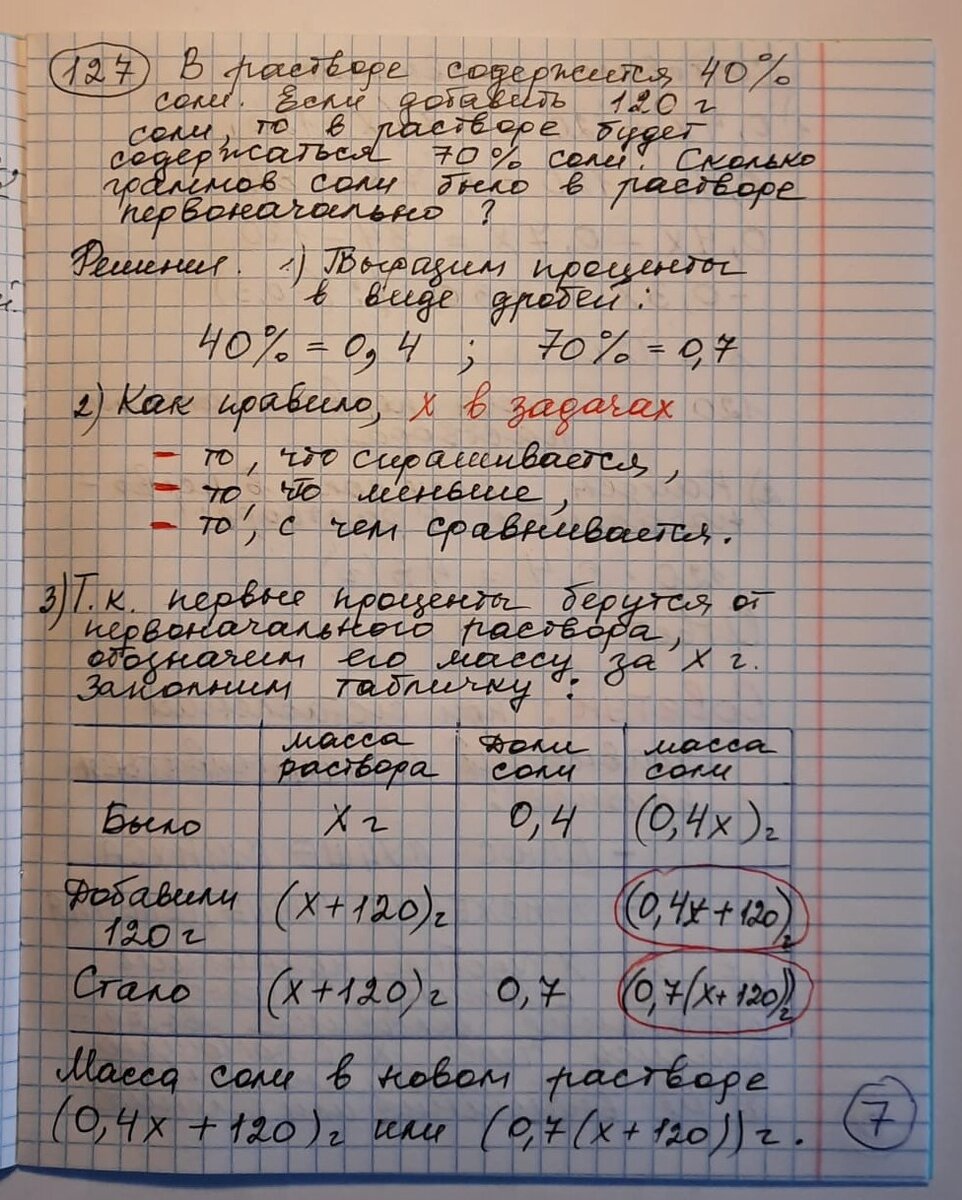 127 В растворе содержится 40%
соли. Если добавить 120 г
соли, то в растворе будет
содержаться 70% соли. Сколько
граммов соли было в растворе
первоначально?
Решение. 1) Выразим проценты
в виде дробей:
40% = 0,4 ; 70% = 0,7
2) Как правило, х в задачах
- то, что спрашивается,
- то, что меньше,
- то, с чем сравнивается.
3) Т.к. первые проценты берутся от
первоначального раствора,
обозначим его массу за х г.
Заполним табличку:
масса раствора Доли соли масса соли
Было х г 0,4 (0,4х) г
Добавили 120 г (х+120) г (0,4х+120) г
Стало (х+120) г 0,7 (0,7(х+120)) г
Масса соли в новом растворе
(0,4х + 120) г или (0,7(х+120)) г.
7